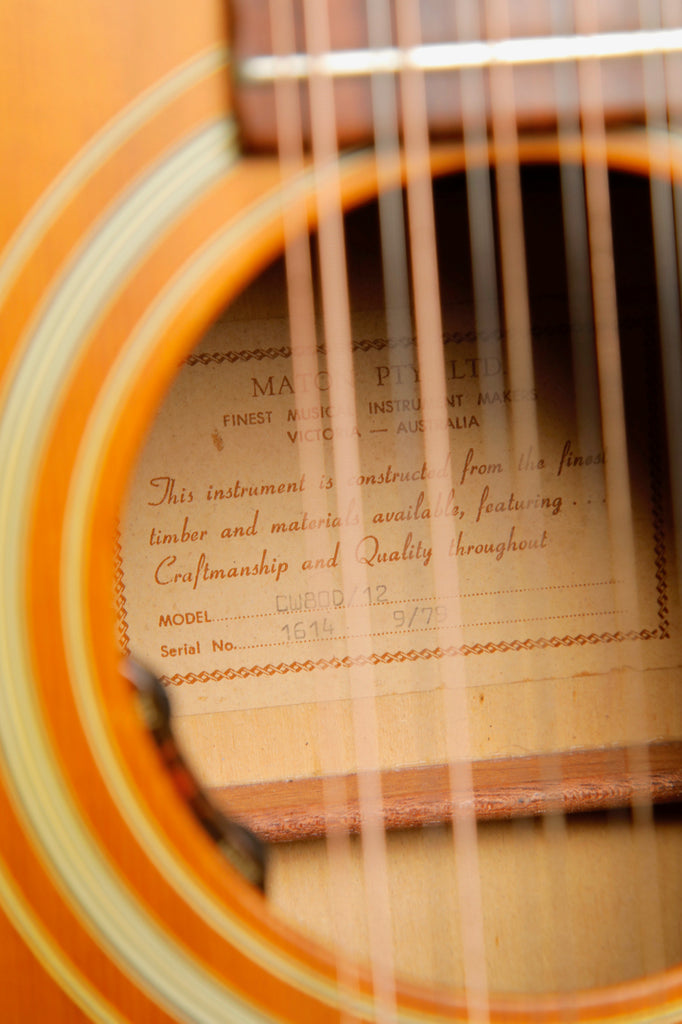 MATON PTY. LTD.
FINEST MUSICAL INSTRUMENT MAKERS
VICTORIA — AUSTRALIA
This instrument is constructed from the finest
timber and materials available, featuring . . .
Craftmanship and Quality throughout
MODEL CW80D/12
Serial No. 1614 9/79